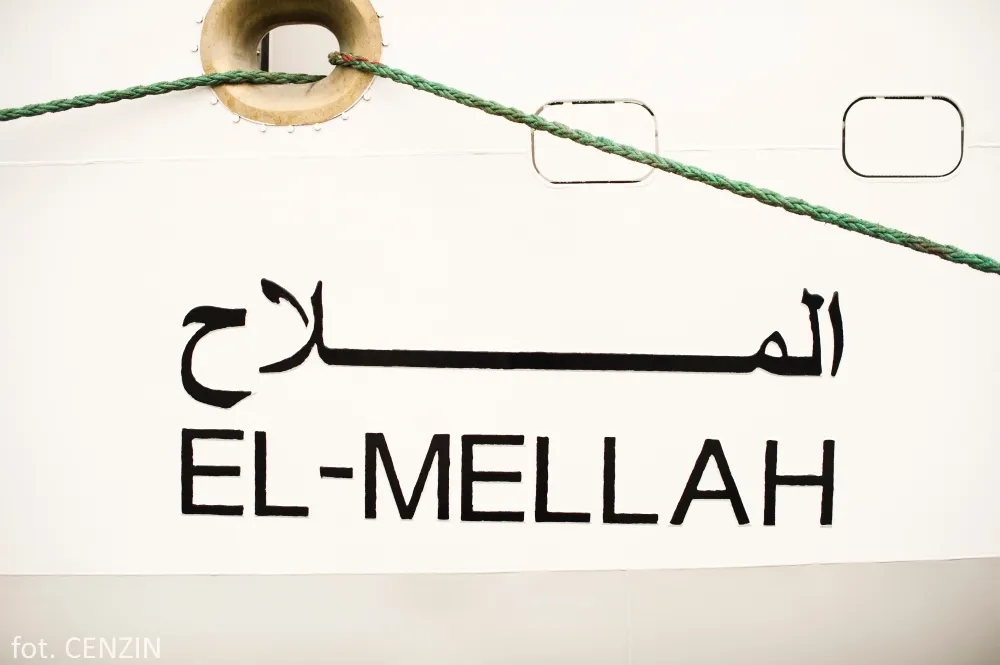 الملاح
EL-MELLAH
fot. CENZIN